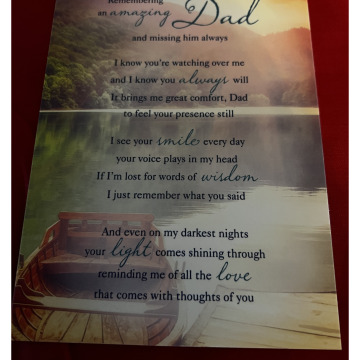 Remembering
an amazing Dad
and missing him always
I know you're watching over me
and I know you always will
It brings me great comfort, Dad
to feel your presence still
I see your smile every day
your voice plays in my head
If I'm lost for words of wisdom
I just remember what you said
And even on my darkest nights
your light comes shining through
reminding me of all the love
that comes with thoughts of you